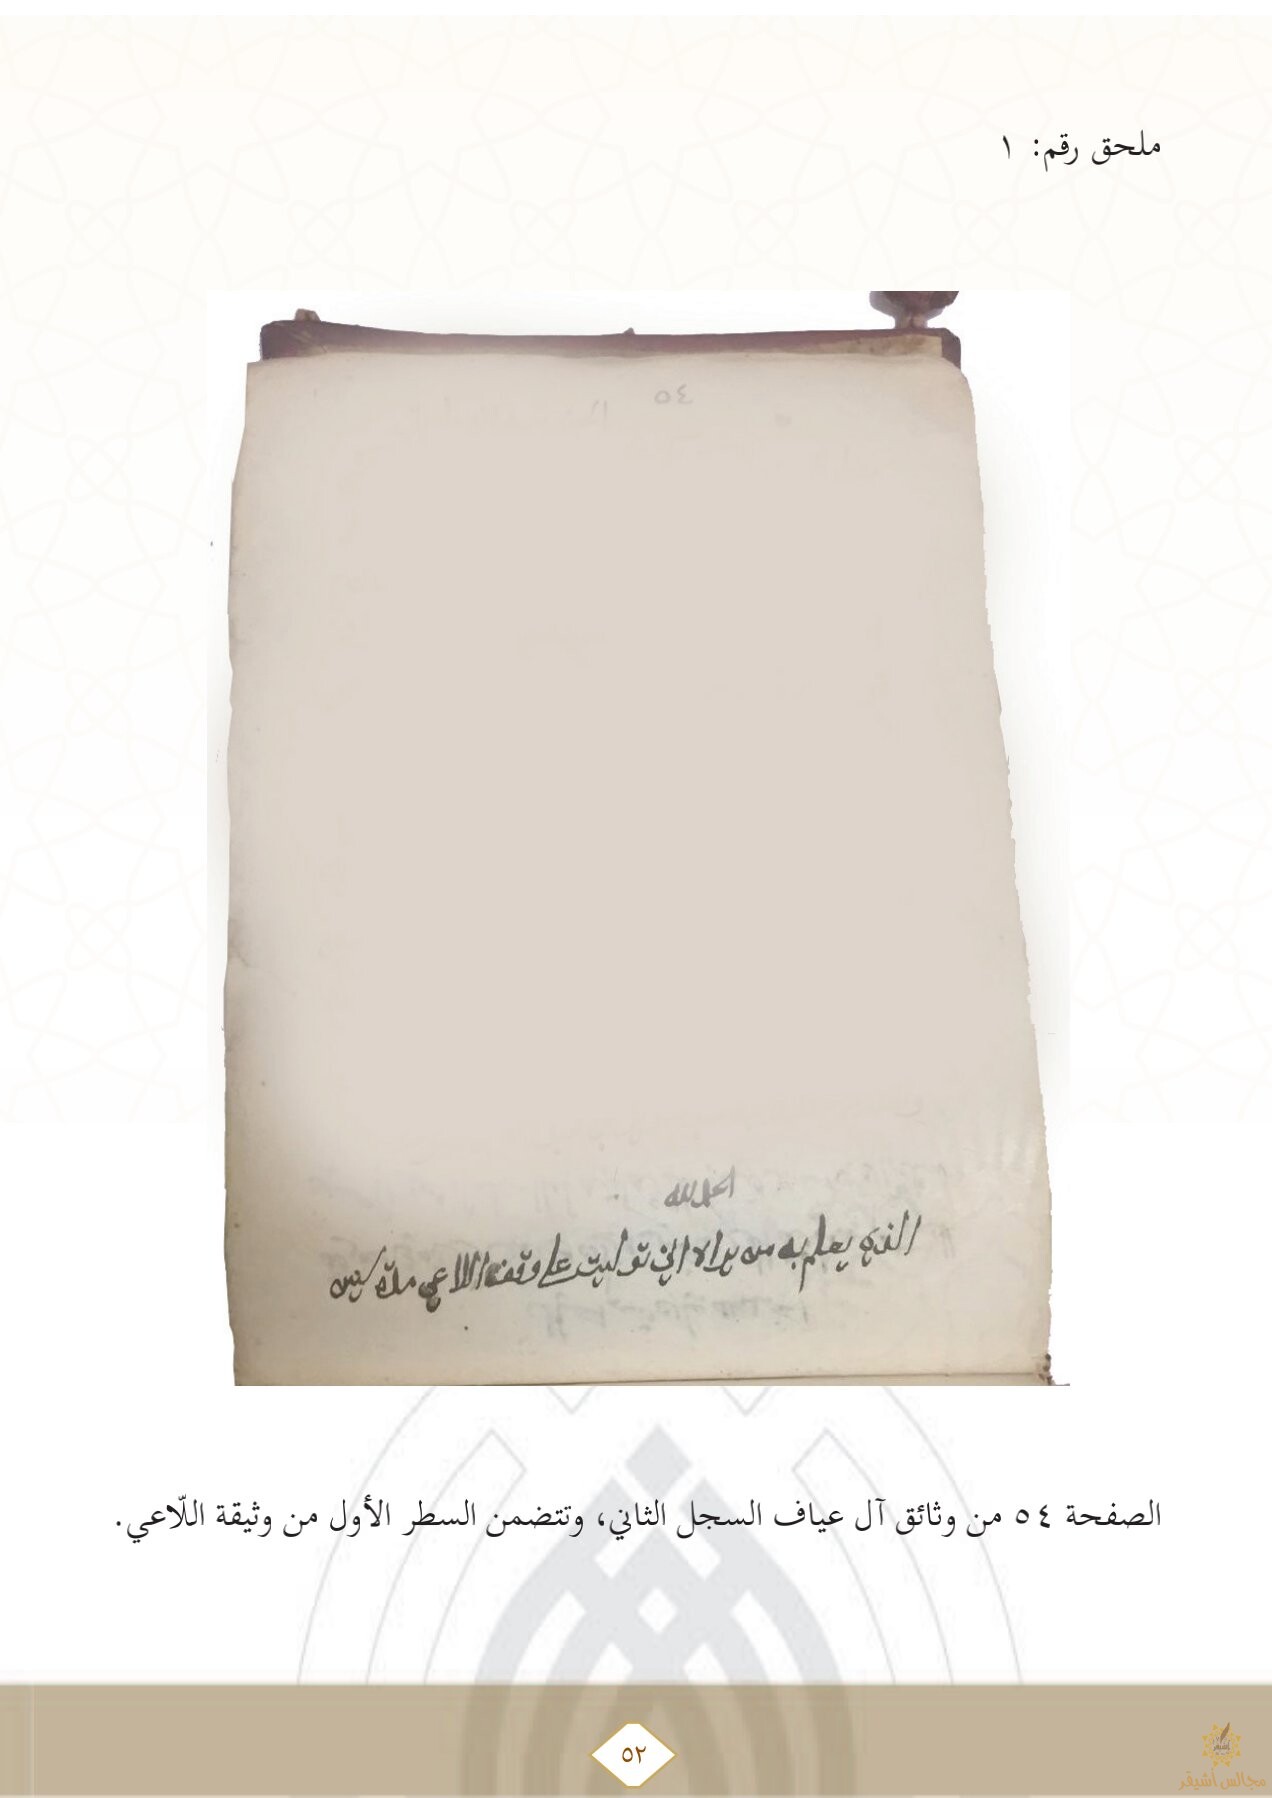 ملحق رقم: ١
٥٤
الحمد لله
الذي يعلم به من يراه اني توليت على وقف اللاعي مدة سنين
الصفحة ٥٤ من وثائق آل عياف السجل الثاني، وتتضمن السطر الأول من وثيقة اللّاعي.
٥٢
مجالس أشيقر